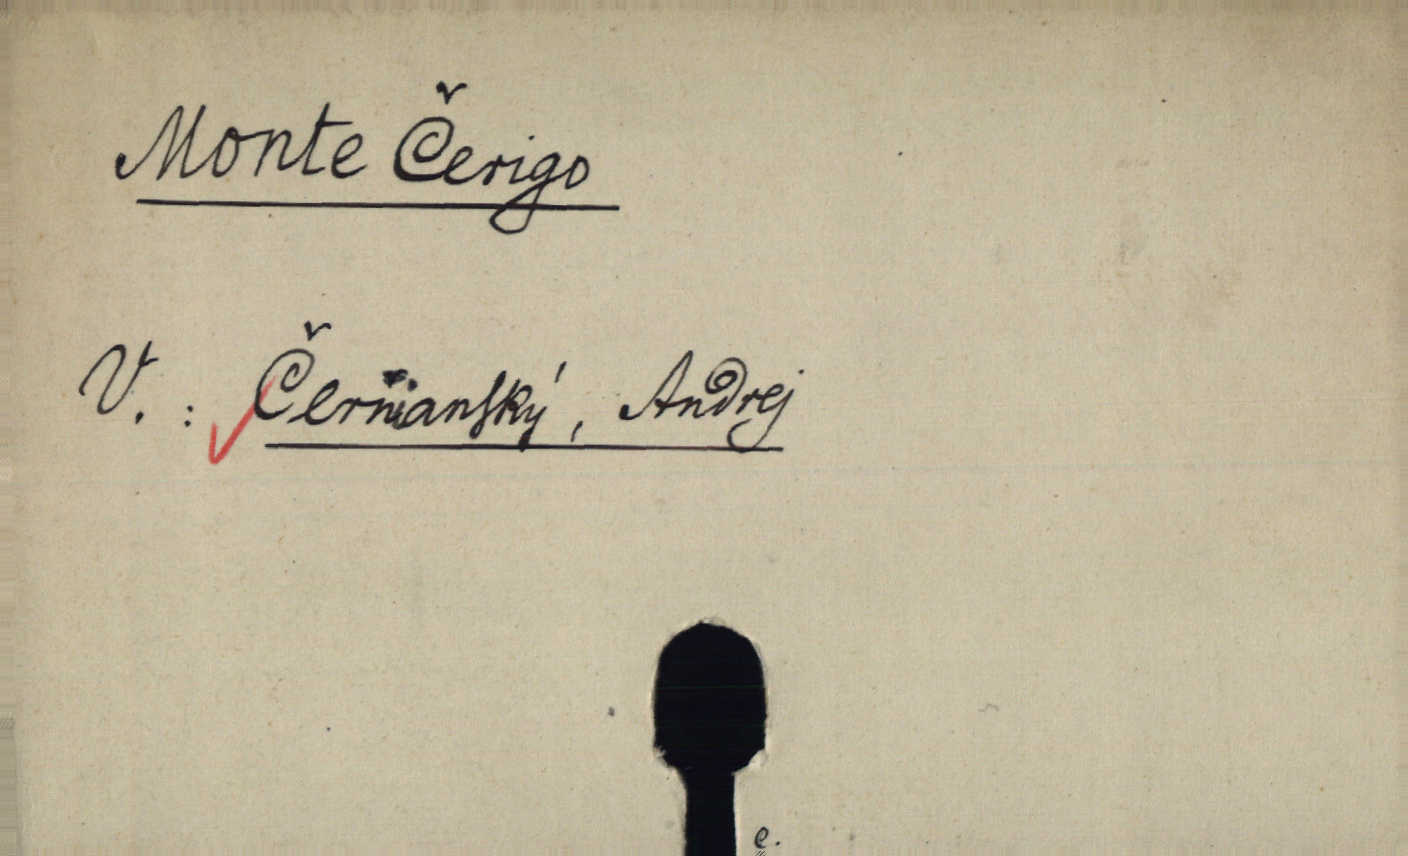 Monte Čerigo
V. : Černianský, Andrej
e.